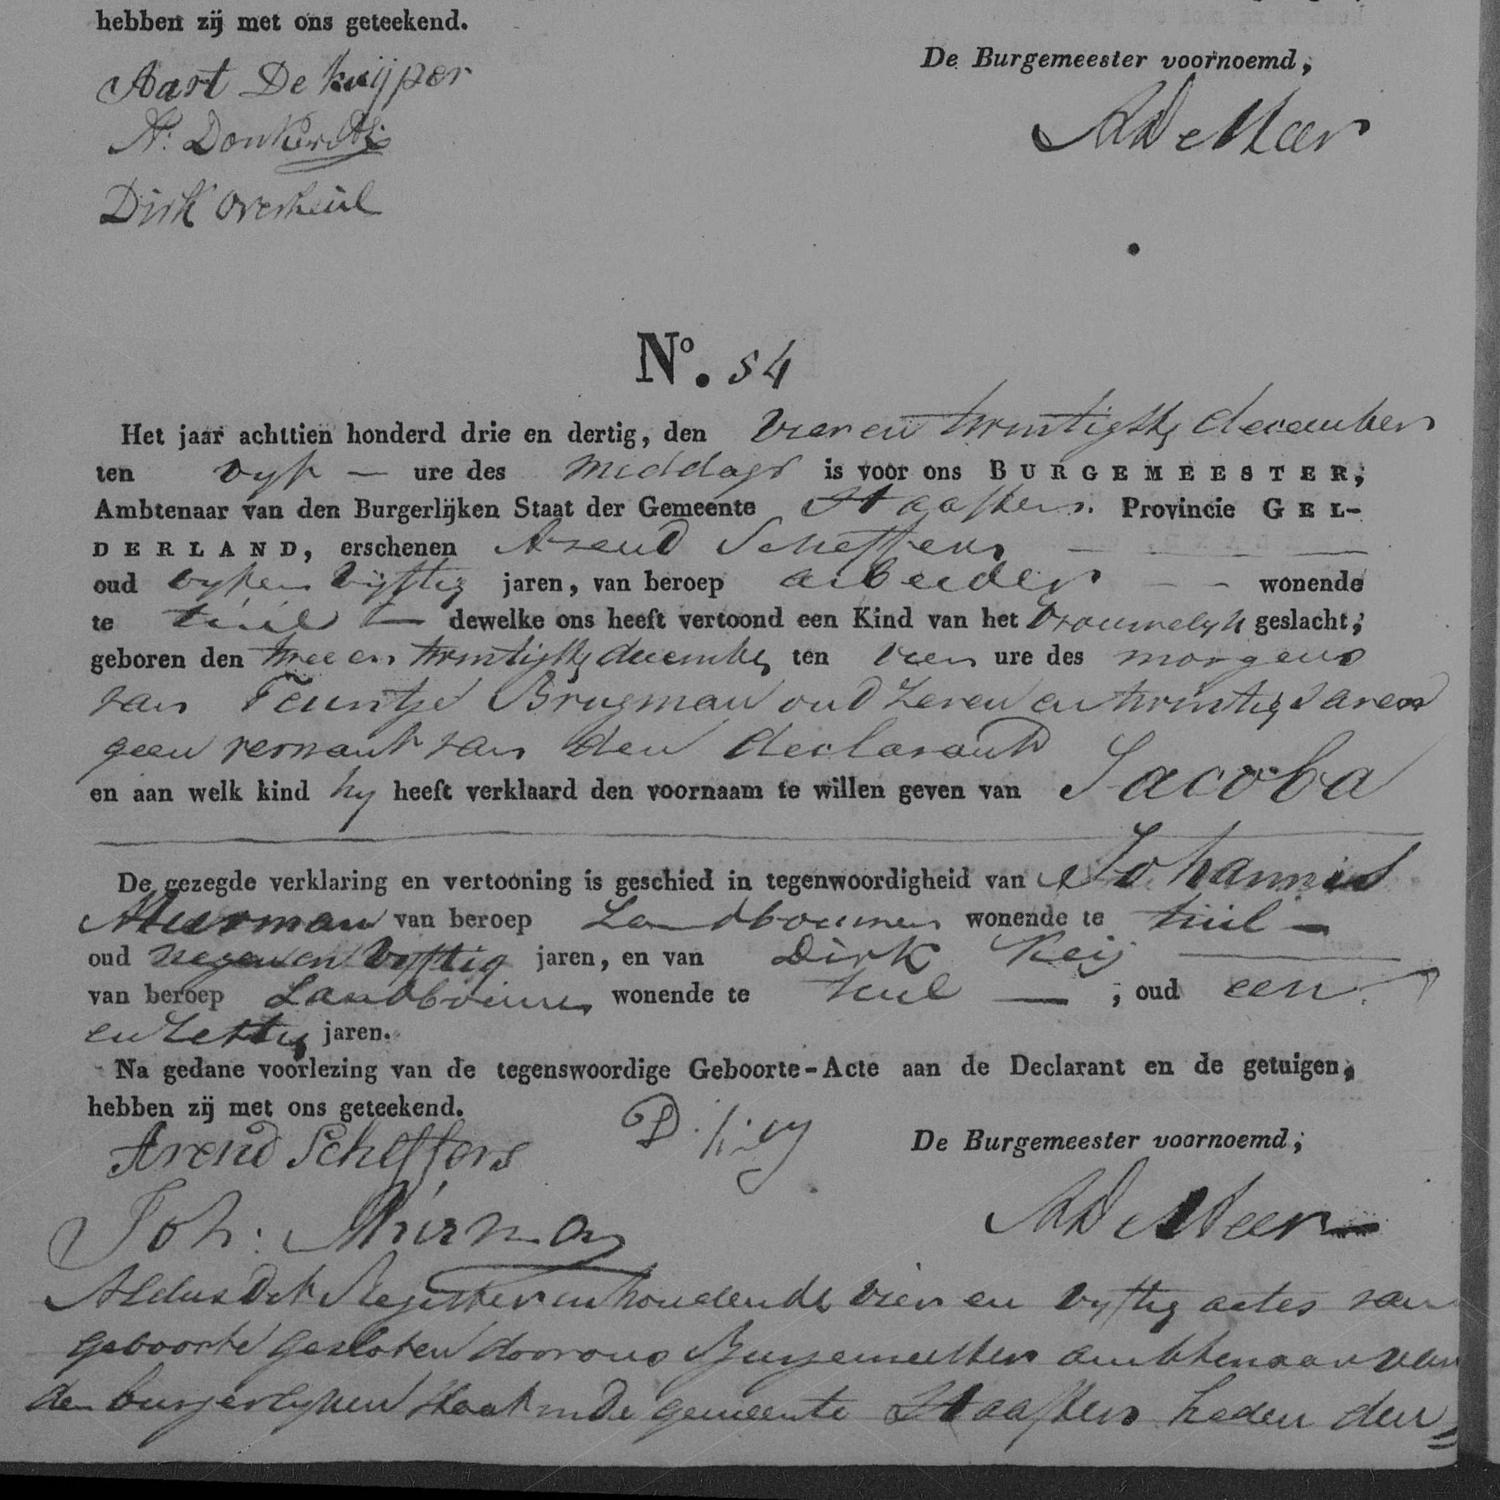 hebben zij met ons geteekend.
De Burgemeester voornoemd,
Aart De Kuijper
A. Donker
Dirk Overheul
ADe Meer
Nº. 54
Het jaar achttien honderd drie en dertig, den vier en twintigste december
ten vyf — ure des middags is voor ons BURGEMEESTER,
Ambtenaar van den Burgerlijken Staat der Gemeente Haaften. Provincie GEL-
DERLAND, erschenen Arend Scheffers — —
oud vyf en vyftig jaren, van beroep arbeider — — wonende
te tuil — dewelke ons heeft vertoond een Kind van het vrouwelyk geslacht,
geboren den twee en twintigste december ten vier ure des morgens
van Teuntje Brugman oud zeven en twintig Jaren
geen vernant van den declarant
en aan welk kind hy heeft verklaard den voornaam te willen geven van Jacoba
De gezegde verklaring en vertooning is geschied in tegenwoordigheid van Johannis
Muurman van beroep Landbouwer wonende te tuil —
oud negen en vyftig jaren, en van Dirk Keij —
van beroep Landbouwer wonende te tuil — ; oud een
en zestig jaren.
Na gedane voorlezing van de tegenswoordige Geboorte-Acte aan de Declarant en de getuigen,
hebben zij met ons geteekend.
De Burgemeester voornoemd,
Arend Scheffers
D. Key
Joh. Muirman
ADe Meer
Aldus Dit Register inhoudende vier en vyftig actes van
geboorte gesloten door ons Burgemeester ambtenaar van
den burgerlyken Staat in de gemeente Haaften heden den